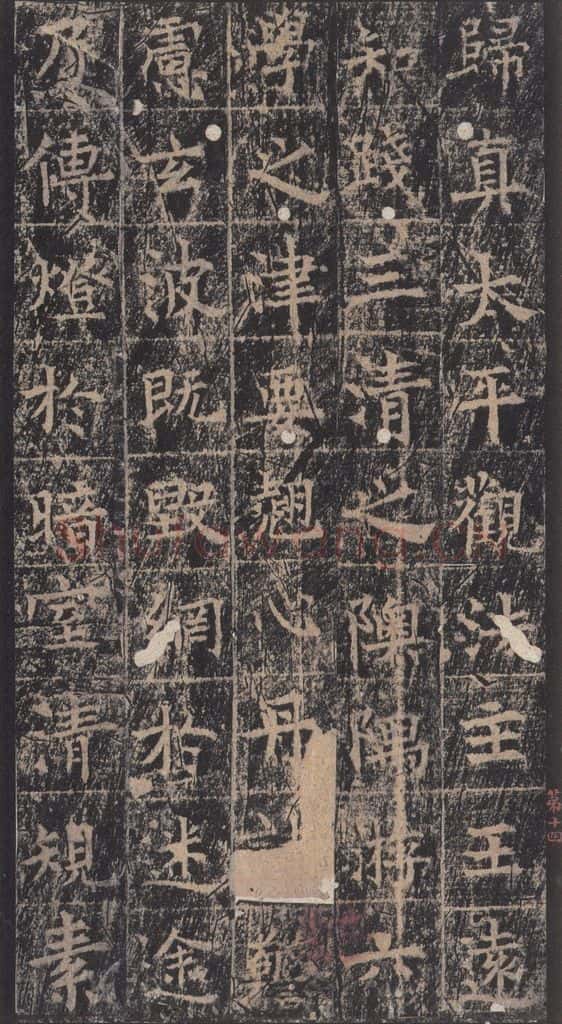 歸真太平觀法主王遠
知踐三清之隩隅游六
學之津要翹心丹
慮玄波既毀網於迷途
傳燈於暗室清規素
第十四
shufawang.cn